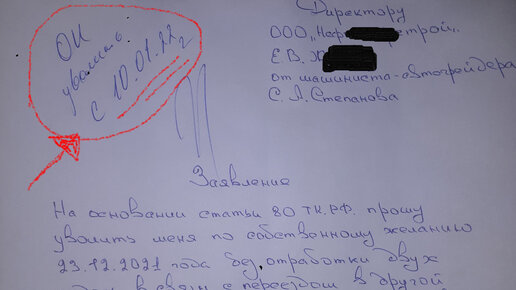 ОК
уволить
с 10.01.22г
Директору
ООО "Неф строй".
Е.В. Х
от машиниста-автогрейдера
С.А. Степанова
Заявление
На основании статьи 80 ТК.РФ. прошу
уволить меня по собственному желанию
23.12.2021 года без отработки двух
в связи с переездом в другой